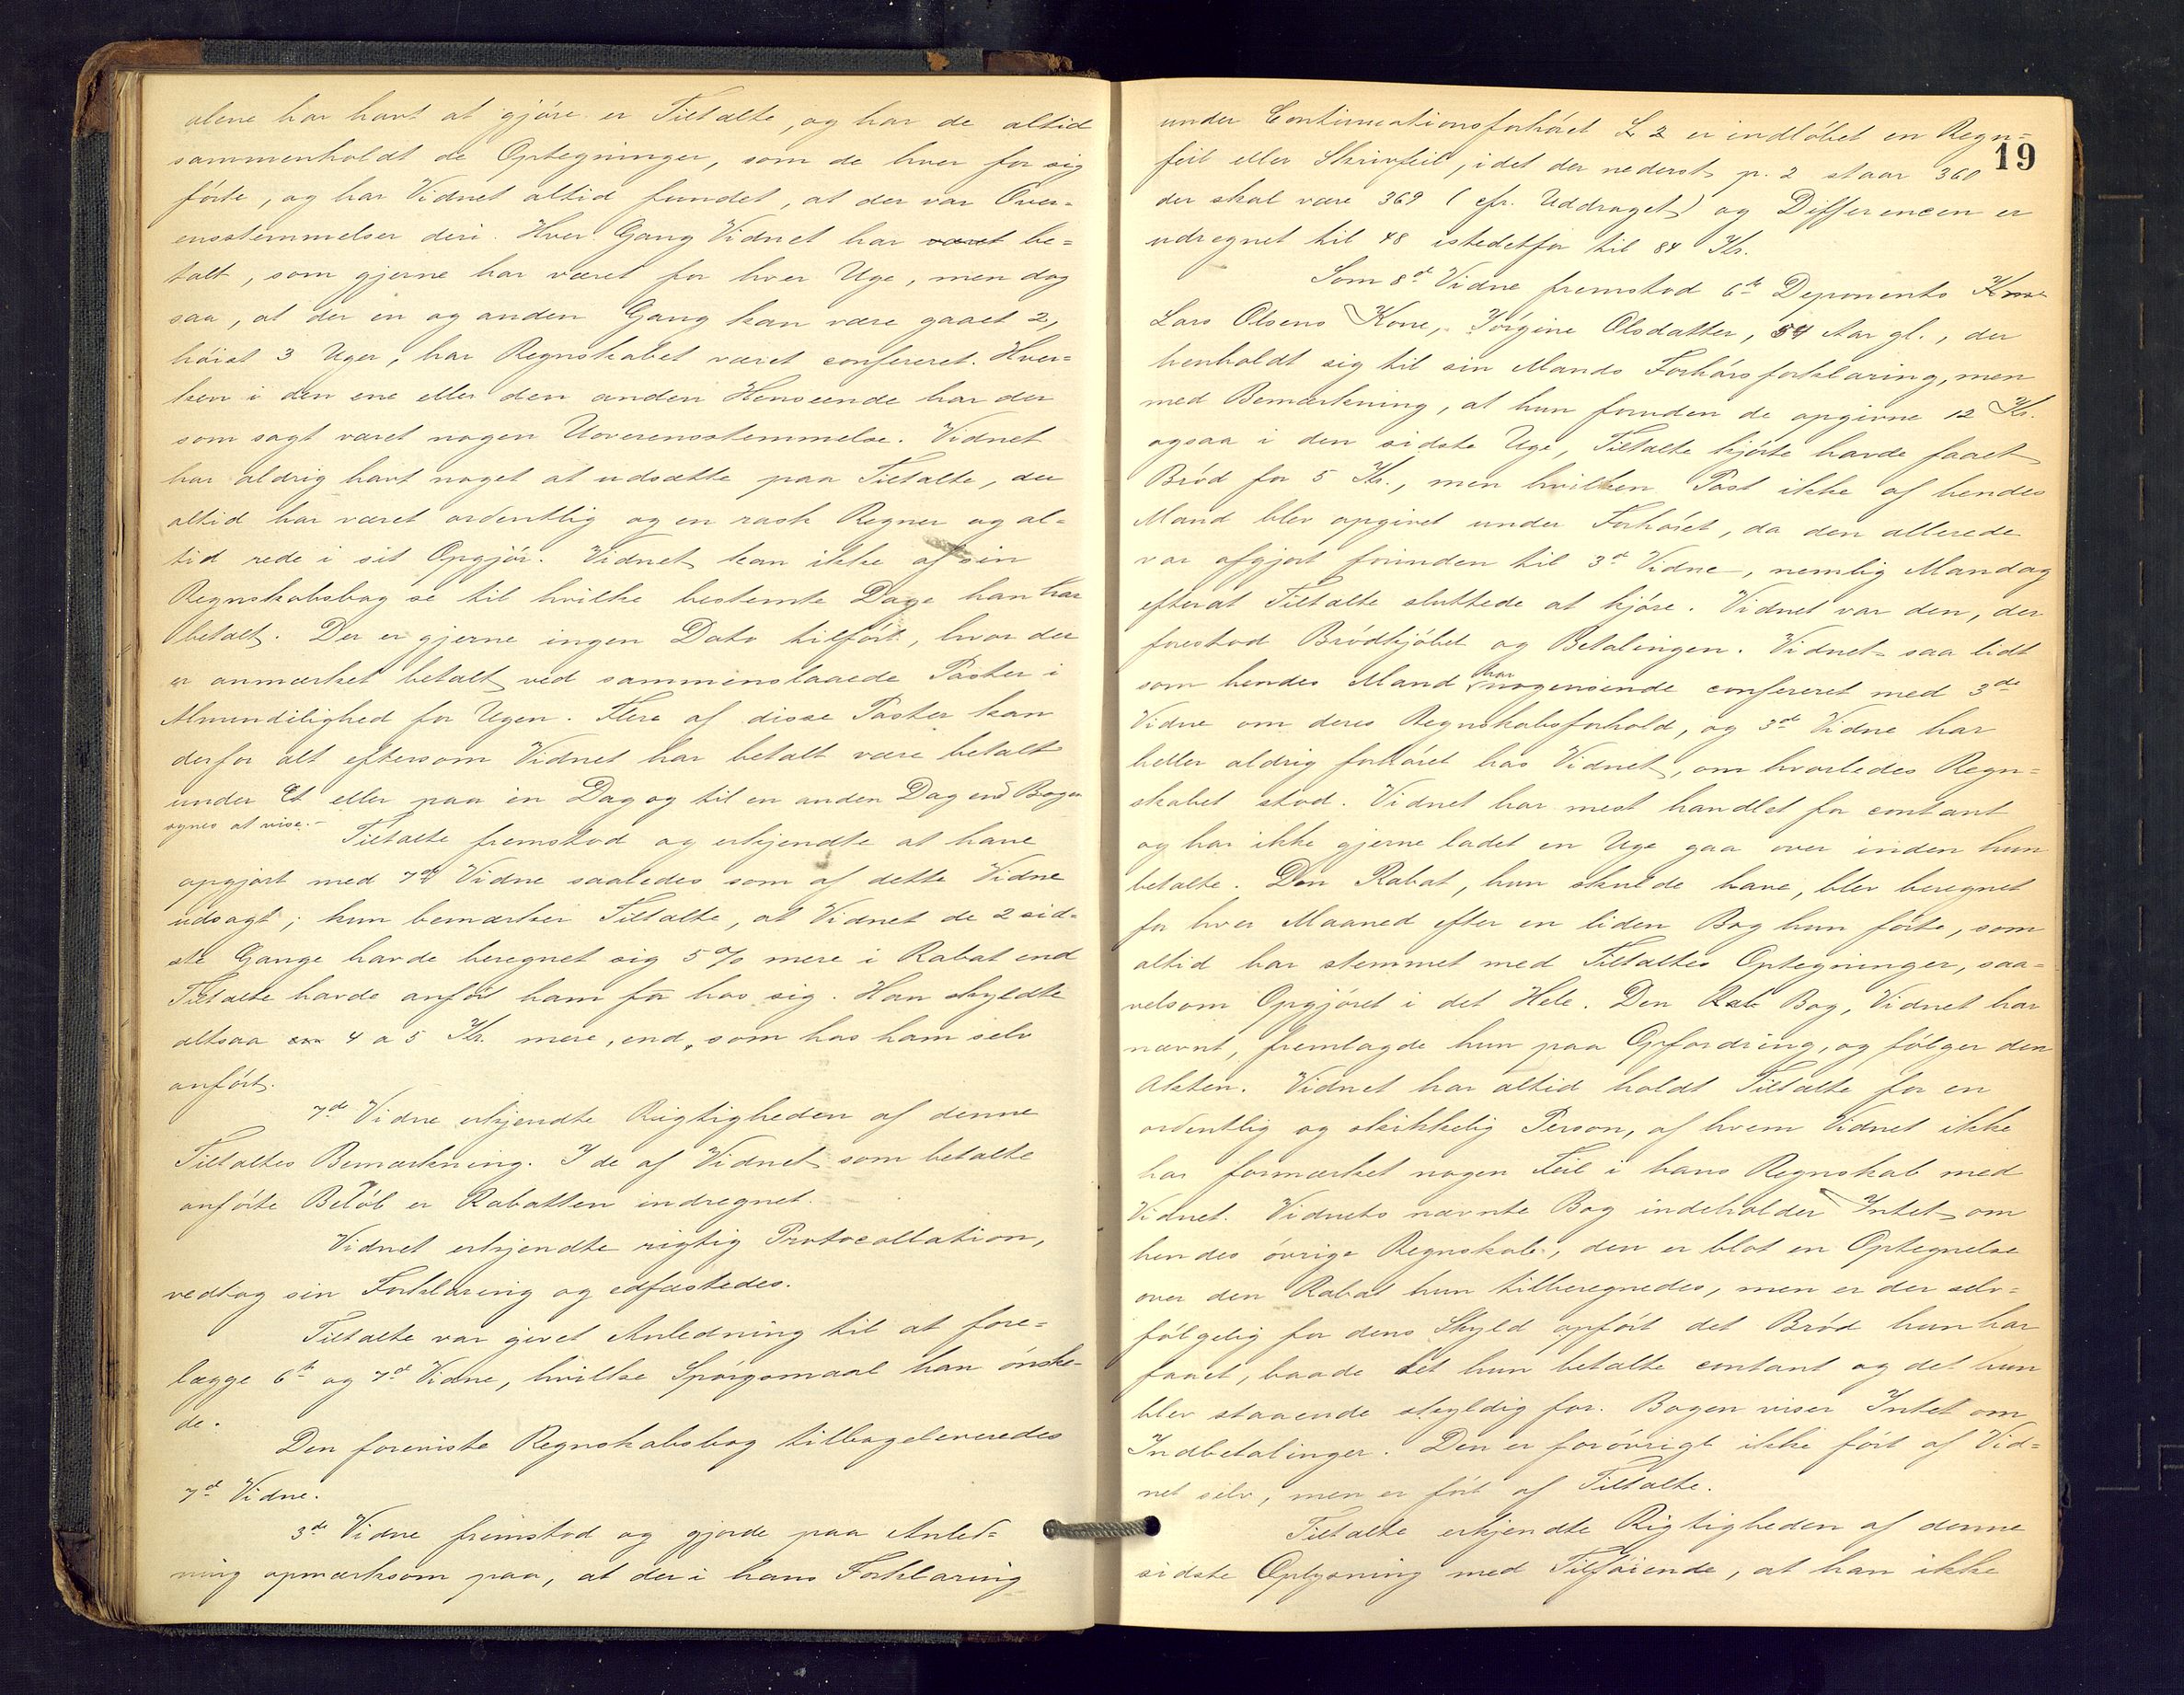 alene har havt at gjøre er Tiltalte, og har de altid
sammenholdt de Optegninger, som de hver for sig
førte, og har Vidnet altid fundet, at der var Over-
ensstemmelser deri. Hver Gang Vidnet har været be-
talt, som gjerne har været for hver Uge, men dog
saa, at der en og anden Gang kan være gaaet 2,
høist 3 Uger, har Regnskabet været confereret. Hver-
ken i den ene eller den anden Henseende har der
som sagt været nogen Uoverensstemmelse. Vidnet
har aldrig havt noget at udsætte paa Tiltalte, der
altid har været ordentlig og en rask Regner og al-
tid rede i sit Opgjør. Vidnet kan ikke af sin
Regnskabsbog se til hvilke bestemte Dage han har
betalt. Der er gjerne ingen Dato tilført, hvor der
er anmærket betalt ved sammenslaaede Poster i
Almindelighed for Ugen. Flere af disse Poster kan
derfor alt eftersom Vidnet har betalt være betalt
under Et eller paa en Dag og til en anden Dag end Bogen
synes at vise.-
Tiltalte fremstod og erkjendte at have
opgjort med 7de Vidne saaledes som af dette Vidne
udsagt; kun bemærker Tiltalte, at Vidnet de 2 sid-
ste Gange havde beregnet sig 5 % mere i Rabat end
Tiltalte havde anført ham for hos sig. Han skyldte
altsaa 4 a 5 Kr. mere, end, som hos ham selv
anført.
7de Vidne erkjendte Rigtigheden af denne
Tiltaltes Bemærkning. I de af Vidnet som betalte
anførte Beløb er Rabatten indregnet.
Vidnet erkjendte rigtig Protocollation,
vedtog sin Forklaring og edfæstedes.
Tiltalte var givet Anledning til at fore-
lægge 6te og 7de Vidne, hvilke Spørgsmaal han ønske-
de.
Den foreviste Regnskabsbog tilbageleveredes
7de Vidne.
3de Vidne fremstod og gjorde paa Anled-
ning opmærksom paa, at der i hans Forklaring
19
under Continuationsforhøret L 2 er indløbet en Regn-
feil eller Skrivfeil, idet der nederst p. 2 staar 360
der skal være 369 (cfr. Uddraget) og Differencen er
udregnet til 48 istedetfor til 84 Kr.
Som 8de Vidne fremstod 6te Deponents Kone
Lars Olsens Kone, Jørgine Olsdatter, 54 Aar gl., der
henholdt sig til sin Mands Forhørsforklaring, men
med Bemærkning, at hun foruden de opgivne 12 Kr.
ogsaa i den sidste Uge, Tiltalte kjørte havde faaet
Brød for 5 Kr., men hvilken Post ikke af hendes
Mand blev opgivet under Forhøret, da den allerede
var afgjort forinden til 3de Vidne, nemlig Mandag
efterat Tiltalte sluttede at kjøre. Vidnet var den, der
forestod Brødkjøbet og Betalingen. Vidnet saa lidt
som hendes Mand har nogensinde confereret med 3de
Vidne om deres Regnskabsforhold, og 3de Vidne har
heller aldrig forhørt hos Vidnet, om hvorledes Regn-
skabet stod. Vidnet har mest handlet for contant
og har ikke gjerne ladet en Uge gaa over inden hun
betalte. Den Rabat, hun skulde have, blev beregnet
for hver Maaned efter en liden Bog hun førte, som
altid har stemmet med Tiltaltes Optegninger, saa-
velsom Opgjøret i det Hele. Den Rab Bog, Vidnet har
nævnt, fremlagde hun paa Opfordring, og følger den
Akten. Vidnet har altid holdt Tiltalte for en
ordentlig og skikkelig Person, af hvem Vidnet ikke
har formærket nogen Feil i hans Regnskab med
Vidnet. Vidnets nævnte Bog indeholder Intet om
hendes øvrige Regnskab, den er blot en Optegnelse
over den Rabat hun tilberegnedes, men er der selv-
følgelig for dens Skyld opført det Brød hun har
faaet, baade det hun betalte contant og det hun
blev staaende skyldig for. Bogen viser Intet om
Indbetalinger. Den er forøvrigt ikke ført af Vid-
net selv, men er ført af Tiltalte.
Tiltalte erkjendte Rigtigheden af denne
sidste Oplysning med Tilføiende, at han ikke